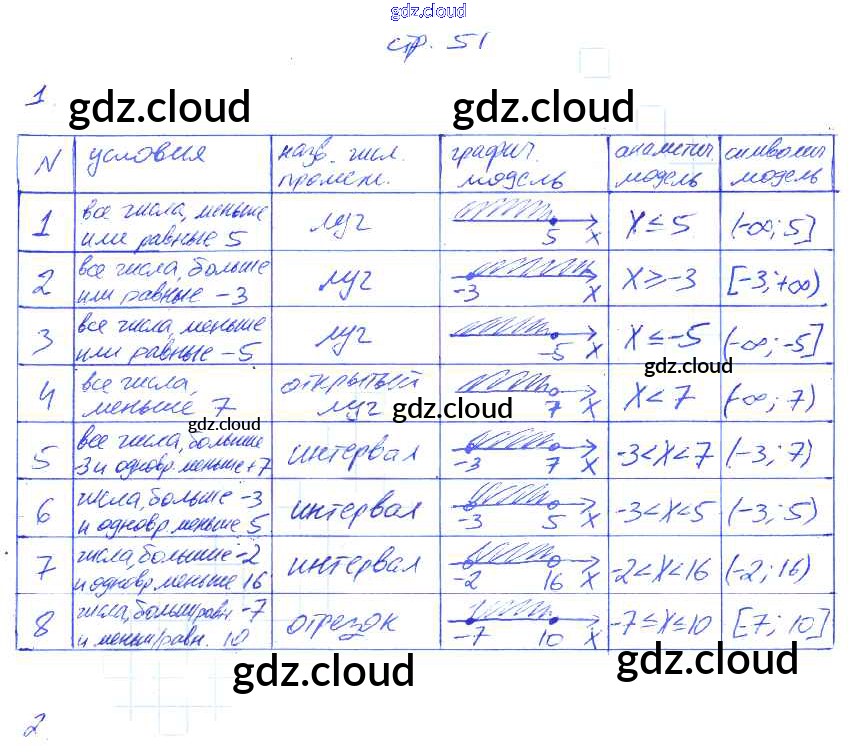 gdz.cloud
стр. 51
1
gdz.cloud gdz.cloud
N условия назв. числ. промеж. графич. модель аналитич. модель символич. модель
1 все числа, меньше или равные 5 луч 5 X X ≤ 5 (-∞; 5]
2 все числа, больше или равные -3 луч -3 X X ≥ -3 [-3; +∞)
3 все числа, меньше или равные -5 луч -5 X X ≤ -5 (-∞; -5]
gdz.cloud
4 все числа, меньше 7 открытый луч 7 X X < 7 (-∞; 7)
gdz.cloud gdz.cloud
5 все числа, больше -3 и одновр. меньше +7 интервал -3 7 X -3 < X < 7 (-3; 7)
6 числа, больше -3 и одновр. меньше 5 интервал -3 5 X -3 < X < 5 (-3; 5)
7 числа, больше -2 и одновр. меньше 16 интервал -2 16 X -2 < X < 16 (-2; 16)
8 числа, больш/равн -7 и меньш/равн. 10 отрезок -7 10 X -7 ≤ X ≤ 10 [7; 10]
gdz.cloud gdz.cloud
2
gdz.cloud